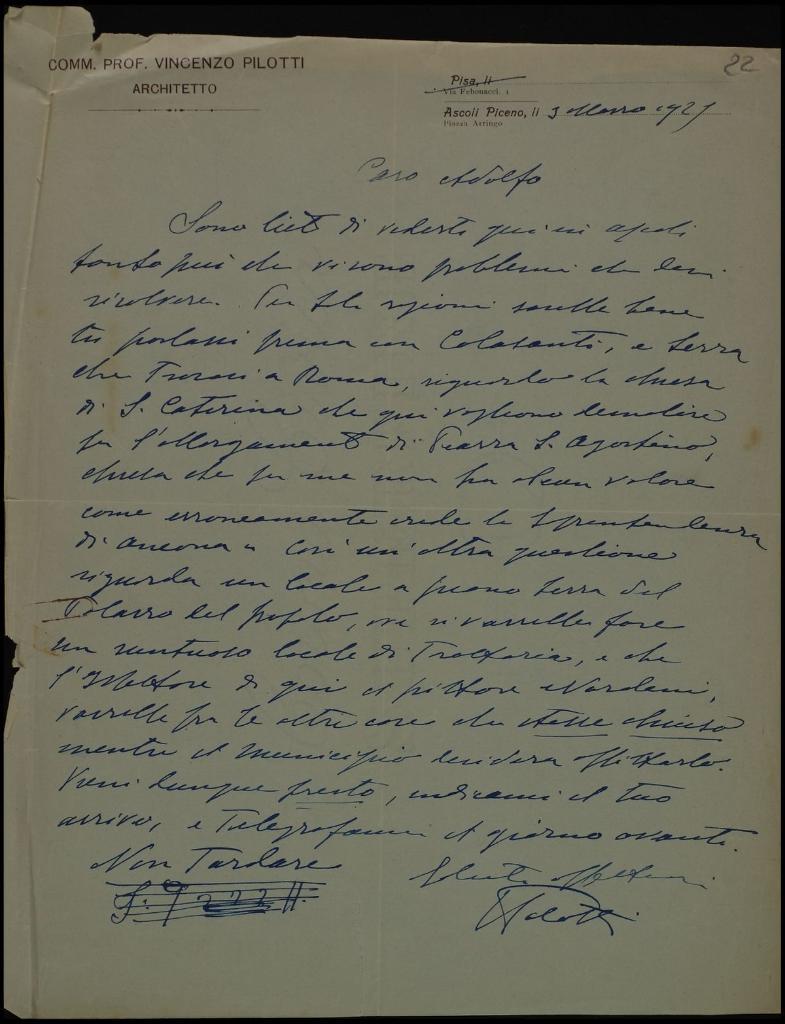 COMM. PROF. VINCENZO PILOTTI
ARCHITETTO
22
Pisa, li
Via Febonacci, 1
Ascoli Piceno, li 3 Marzo 192
Piazza Arringo
Caro Adolfo
Sono lieto di vederti qui in Ascoli
tanto più che vi sono problemi che devi
risolvere. Per tali ragioni sarebbe bene
tu parlassi prima con Colasanti, e Serra
che trovasi a Roma, riguardo la chiesa
di S. Caterina che qui vogliono demolire
per l'allargamento di Piazza S. Agostino,
chiesa che per me non ha alcun valore
come erroneamente crede la Sprentendenza
di Ancona e così un'altra questione
riguarda un locale a piano terra del
Palazzo del popolo, ove si vorrebbe fare
un suntuoso locale di Trattoria, e che
l'Ispettore di qui il pittore Nardini,
vorrebbe fra le altre cose che stesse chiuso
mentre il municipio desidera affittarlo.
Vieni dunque presto, indicami il tuo
arrivo, e Telegrafami il giorno avanti.
Non Tardare
Saluti affettuosi
VPilotti